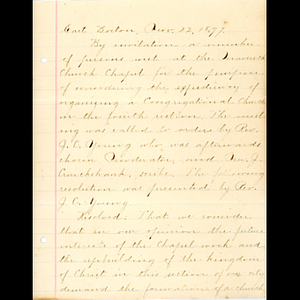 East Boston, Nov. 22, 1897.
By invitation a number
of persons met at the Maverick
Church Chapel for the purpose
of considering the expediency of
organizing a Congregational Church
in the fourth section. The meet-
ing was called to order by Rev.
J. C. Young who was afterwards
chosen Moderator, and Wm. J.
Cruickshank, scribe. The following
resolution was presented by Rev.
J. C. Young
Resolved: That we consider
that in our opinion the future
interests of the Chapel work and
the upbuilding of the kingdom
of Christ in this section of our city
demand the formation of a church